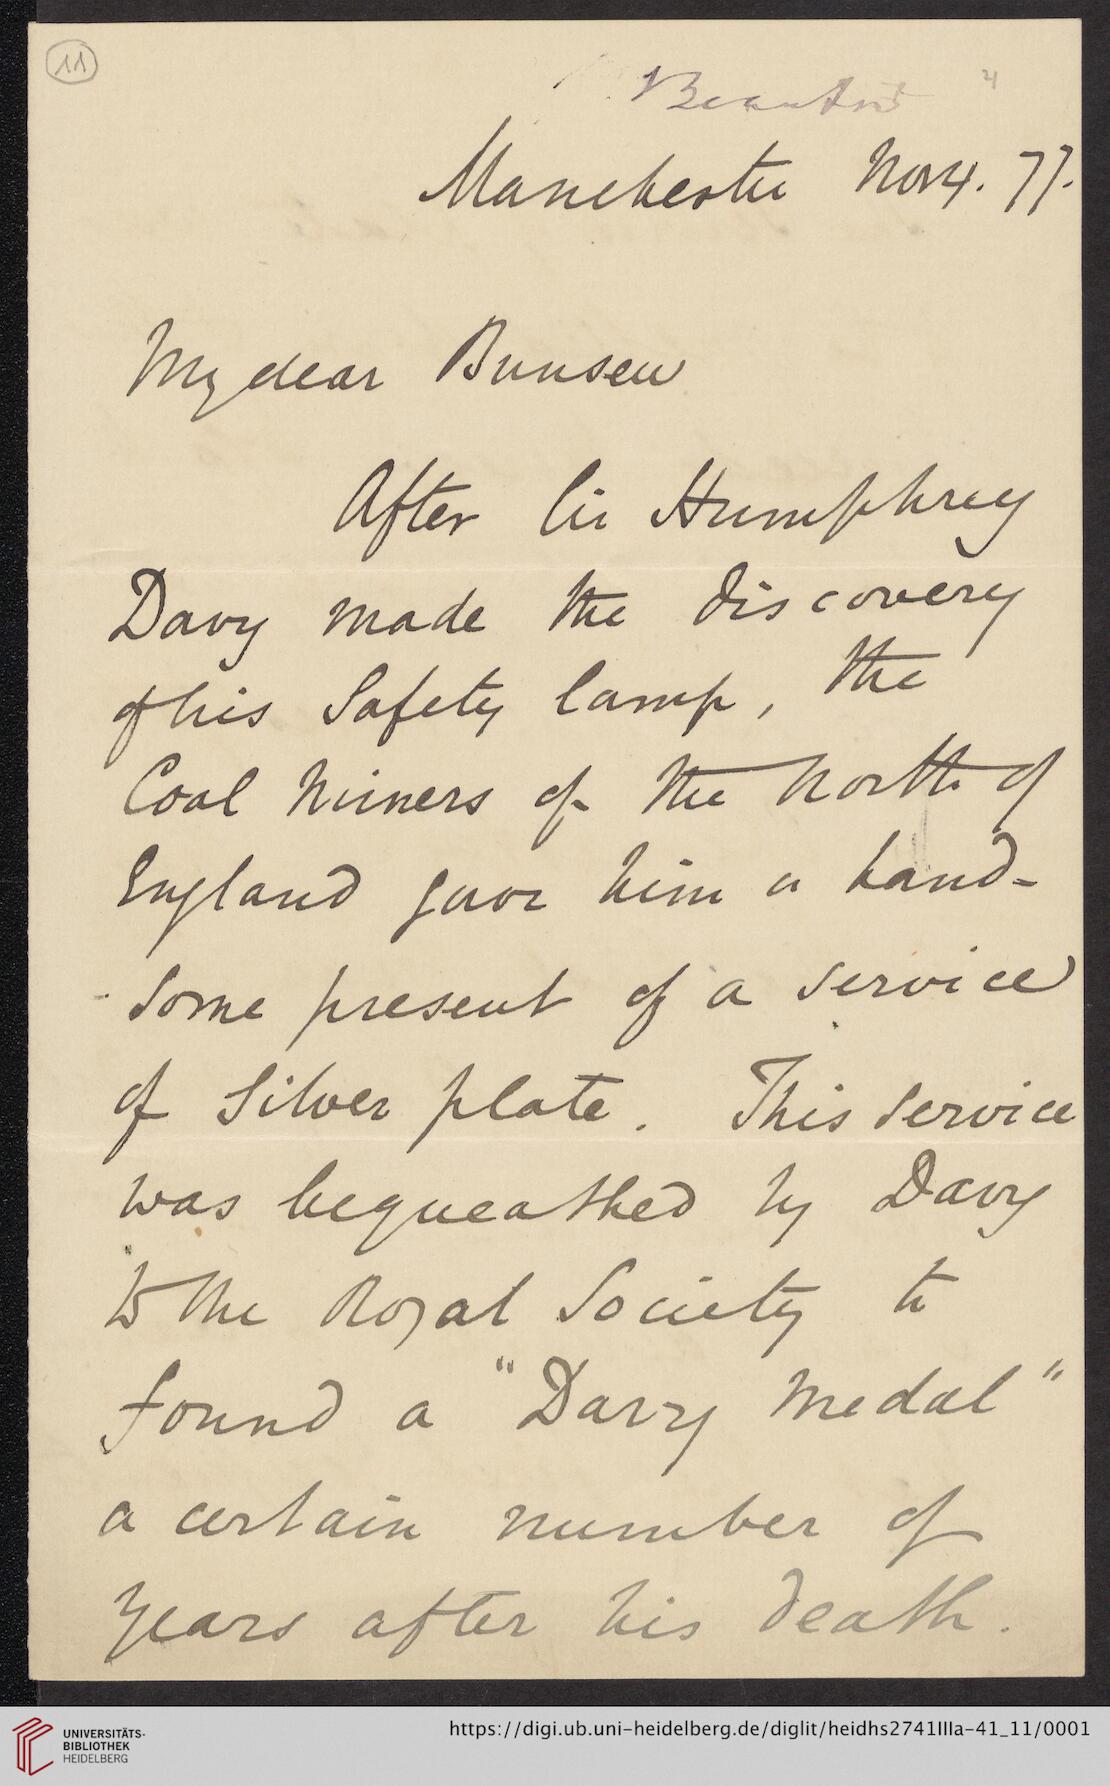 11
Manchester Nov 4. 77.
My dear Bunsen
After Sir Humphrey
Davy made the discovery
of his Safety lamp, the
Coal Miners of the North of
England gave him a hand-
some present of a service
of Silver plate. This service
was bequeathed by Davy
to the Royal Society to
found a "Davy Medal"
a certain number of
years after his death.
UNIVERSITÄTS-
BIBLIOTHEK
HEIDELBERG
https://digi.ub.uni-heidelberg.de/diglit/heidhs2741IIIa-41_11/0001